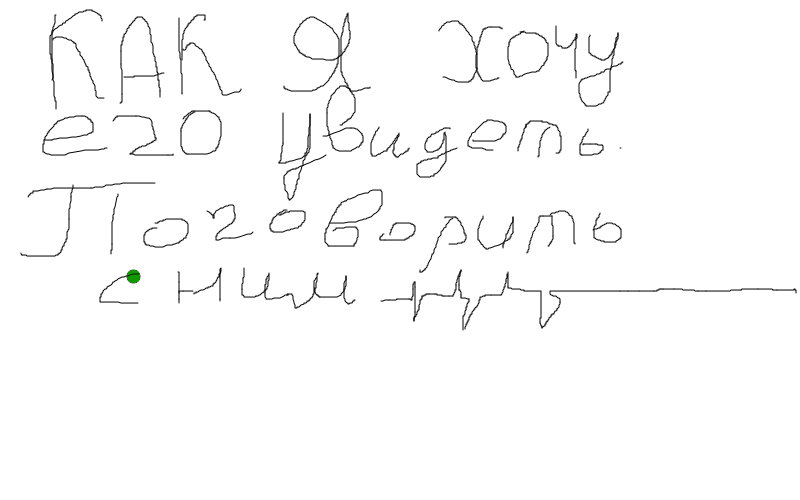 КАК Я ХОЧУ
его увидеть.
Поговорить
с ним